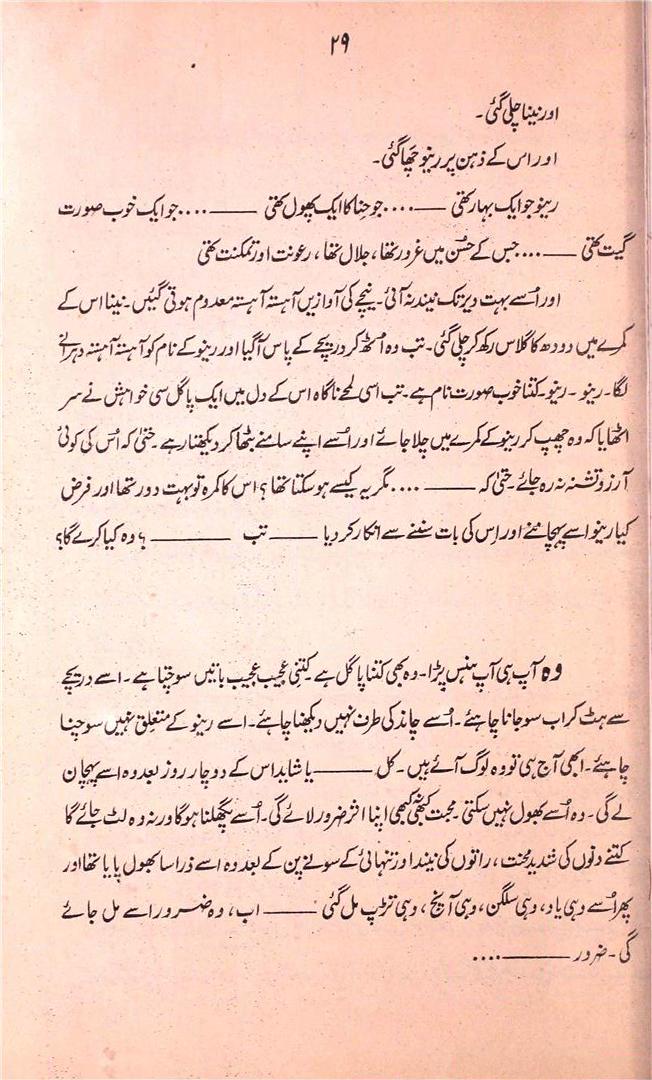 ۲۹
اور نینا چلی گئی۔
اور اس کے ذہن پر رینو چھا گئی۔
رینو جو ایک بہار تھی ——.... جو حنا کا ایک پھول تھی ——.... جو ایک خوب صورت
گیت تھی ——.... جس کے حُسن میں غرور تھا، جلال تھا، رعونت اور تمکنت تھی
اور اُسے بہت دیر تک نیند نہ آئی۔ نیچے کی آوازیں آہستہ آہستہ معدوم ہوتی گئیں۔ نینا اس کے
کمرے میں دودھ کا گلاس رکھ کر چلی گئی۔ تب وہ اُٹھ کر دریچے کے پاس آ گیا اور رینو کے نام کو آہستہ آہستہ دہرانے
لگا۔ رینو۔ رینو۔ کتنا خوب صورت نام ہے۔ تب اسی لمحے ناگاہ اس کے دل میں ایک پاگل سی خواہش نے سر
اٹھایا کہ وہ چھپ کر رینو کے کمرے میں چلا جائے اور اُسے اپنے سامنے بٹھا کر دیکھتا رہے۔ حتیٰ کہ اُس کی کوئی
آرزو تشنہ نہ رہ جائے۔ حتیٰ کہ ——.... مگر یہ کیسے ہو سکتا تھا؟ اس کا کمرہ تو بہت دور تھا اور فرض
کیا رینو اسے پہچاننے اور اِس کی بات سننے سے انکار کر دیا —— تب ———؟ وہ کیا کرے گا؟
وہ آپ ہی آپ ہنس پڑا۔ وہ بھی کتنا پاگل ہے کتنی عجیب عجیب باتیں سوچتا ہے۔ اسے دریچے
سے ہٹ کر اب سو جانا چاہئے۔ اُسے چاند کی طرف نہیں دیکھنا چاہئے۔ اسے رینو کے متعلق نہیں سوچنا
چاہئے۔ ابھی آج ہی تو وہ لوگ آئے ہیں۔ کل —— یا شاید اس کے دو چار روز بعد وہ اسے پہچان
لے گی۔ وہ اُسے بھول نہیں سکتی۔ محبت کبھی نہ کبھی اپنا اثر ضرور لائے گی۔ اُسے پگھلنا ہو گا ورنہ وہ لٹ جائے گا
کتنے دنوں کی شدید محنت، راتوں کی نیند اور تنہائی کے سونے پن کے بعد وہ اسے ذرا سا بھول پایا تھا اور
پھر اُسے وہی یاد، وہی سلگن، وہی آنچ، وہی تڑپ مل گئی —— اب، وہ ضرور اسے مل جائے
گی۔ ضرور ——....